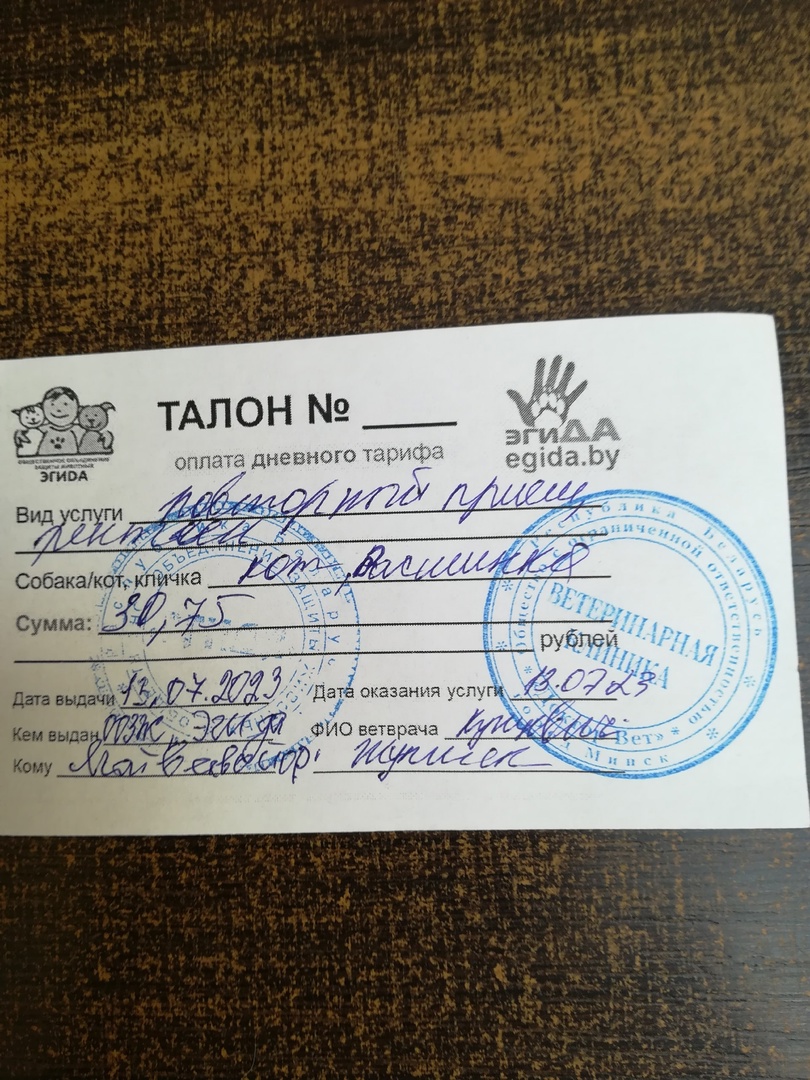 ТАЛОН № ____
оплата дневного тарифа
ОБЩЕСТВЕННОЕ ОБЪЕДИНЕНИЕ
ЗАЩИТЫ ЖИВОТНЫХ
ЭГИДА
эгиДА
egida.by
Вид услуги повторный прием
рентген
Собака/кот, кличка кот Василинка
Сумма: 30,75
рублей
Дата выдачи 13.07.2023 Дата оказания услуги 13.07.23
Кем выдан ООЗЖ Эгида ФИО ветврача
Кому
Республика Беларусь
Общество с ограниченной ответственностью
ВЕТЕРИНАРНАЯ
КЛИНИКА
Вет»
Минск